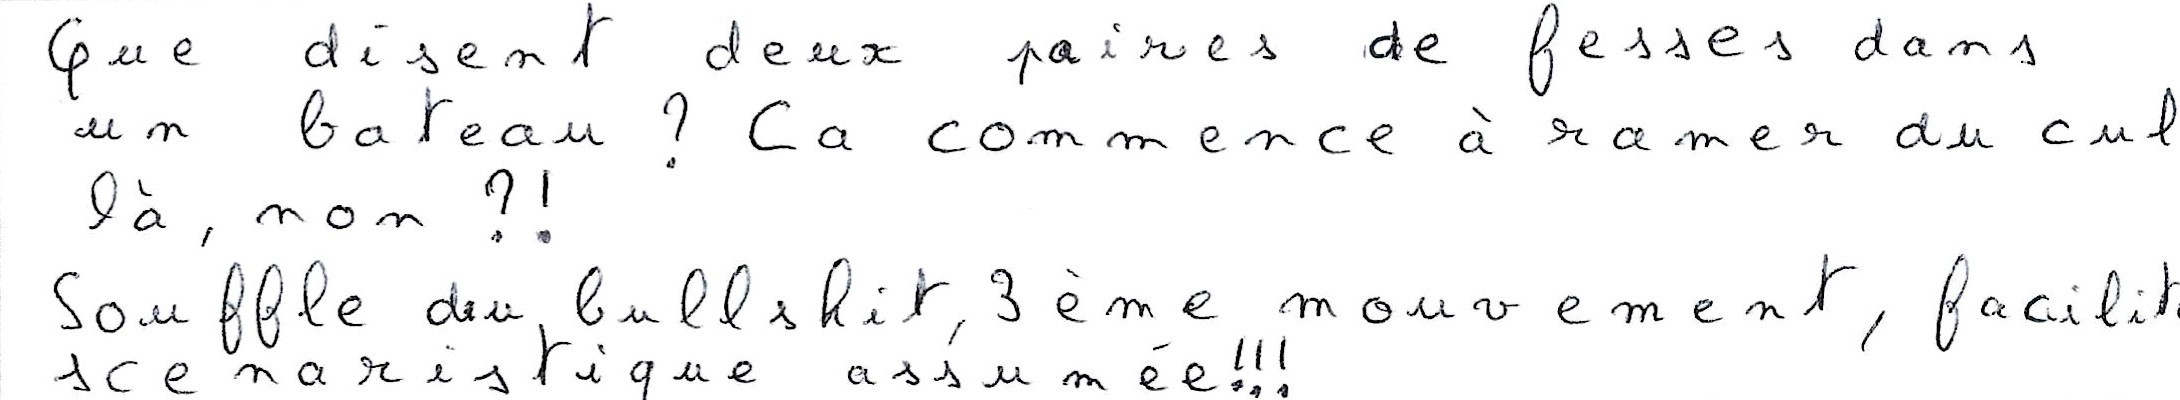 Que disent deux paires de fesses dans
un bateau ? Ca commence à ramer du cul
là, non ?!
Souffle du bullshit, 3ème mouvement, facilit
scenaristique assumée!!!